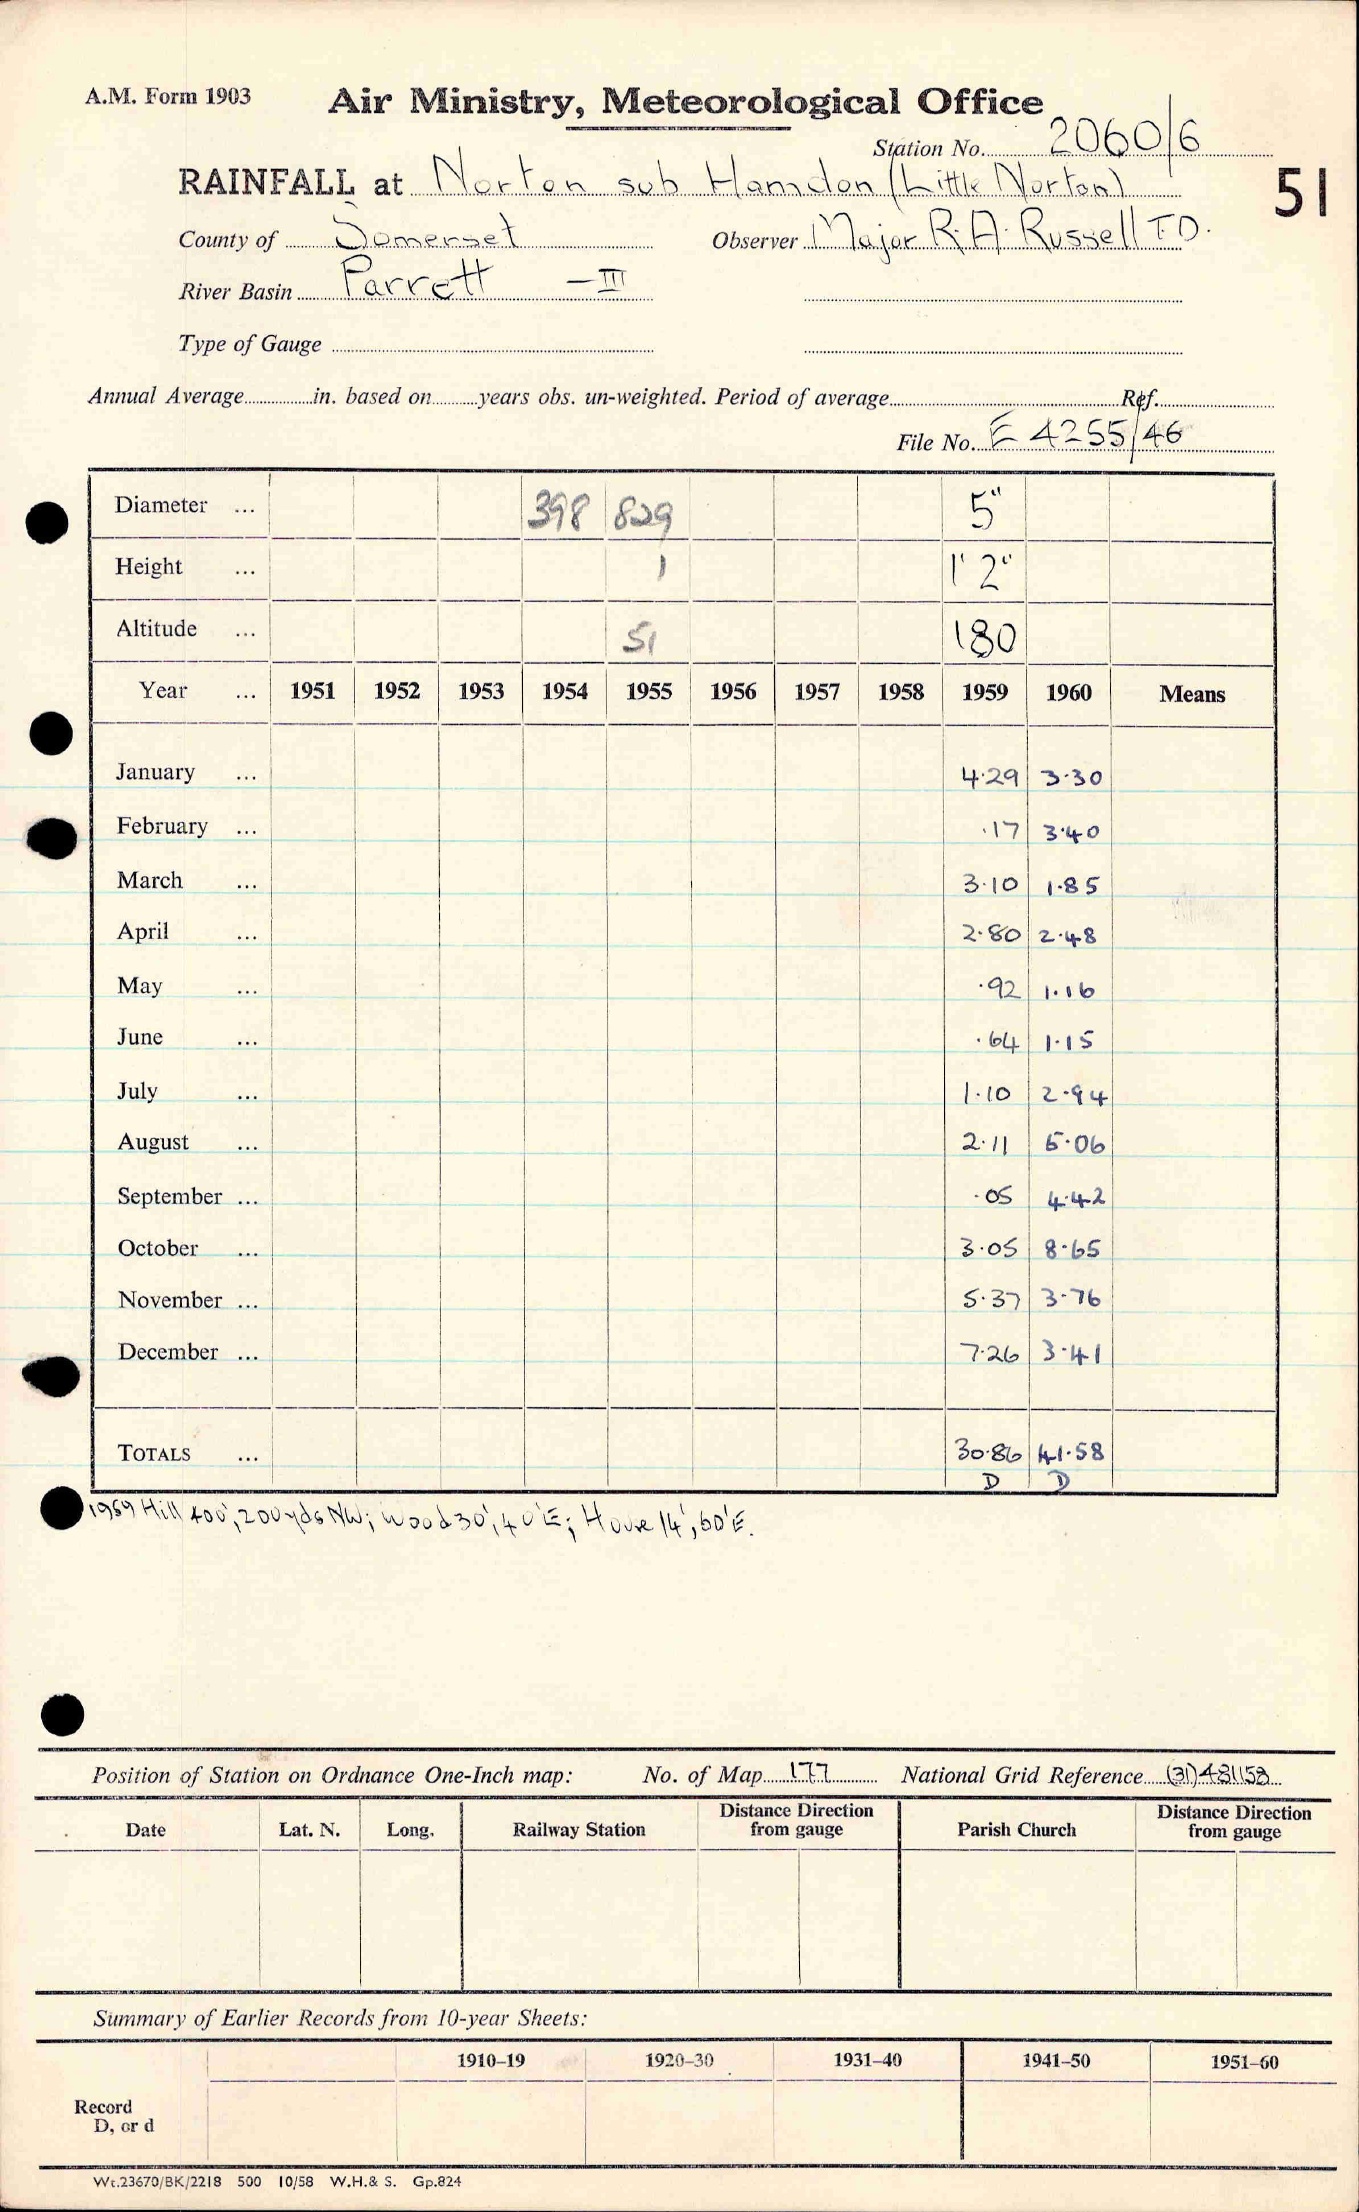 A.M. Form 1903
Air Ministry, Meteorological Office
Station No. 2060/6
RAINFALL at Norton sub Hamdon (Little Norton)
51
County of Somerset Observer Major R.A. Russell T.D.
River Basin Parrett — III
Type of Gauge
Annual Average in. based on years obs. un-weighted. Period of average Ref.
File No. E 4255/46
Diameter ... 398 829 5"
Height ... 1 1' 2"
Altitude ... 51 180
Year ... 1951 1952 1953 1954 1955 1956 1957 1958 1959 1960 Means
January ... 4.29 3.30
February ... .17 3.40
March ... 3.10 1.85
April ... 2.80 2.48
May ... .92 1.16
June ... .64 1.15
July ... 1.10 2.94
August ... 2.11 5.06
September ... .05 4.42
October ... 3.05 8.65
November ... 5.37 3.76
December ... 7.26 3.41
TOTALS ... 30.86 41.58
D D
1959 Hill 400', 200yds NW; Wood 30', 40'E; House 14', 60'E.
Position of Station on Ordnance One-Inch map: No. of Map 177 National Grid Reference (31)481158
Date Lat. N. Long. Railway Station Distance Direction from gauge Parish Church Distance Direction from gauge
Summary of Earlier Records from 10-year Sheets:
1910–19 1920–30 1931–40 1941–50 1951–60
Record
D, or d
Wt.23670/BK/2218 500 10/58 W.H.& S. Gp.824